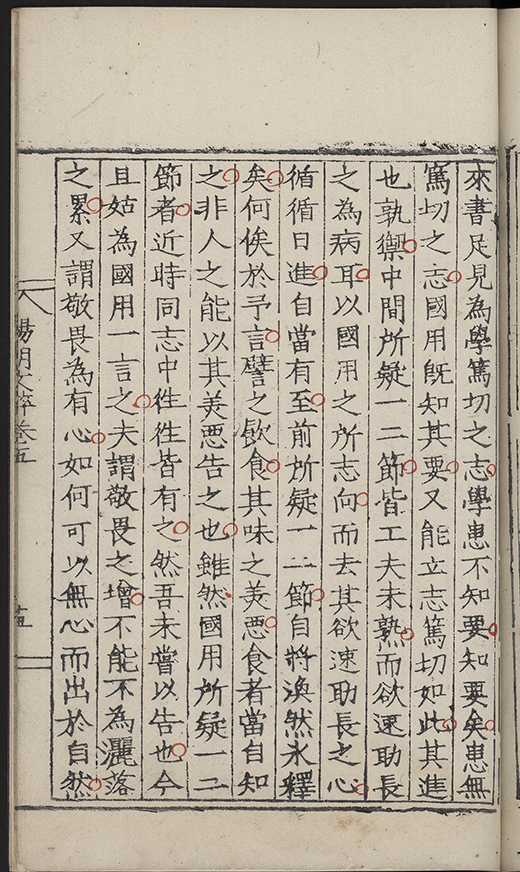 來書足見為學篤切之志學患不知要知要矣患無
篤切之志國用既知其要又能立志篤切如此其進
也孰禦中間所疑一二節皆工夫未熟而欲速助長
之為病耳以國用之所志向而去其欲速助長之心
循循日進自當有至前所疑一二節自將渙然氷釋
矣何俟於予言譬之飲食其味之美惡食者當自知
之非人之能以其美惡告之也雖然國用所疑一二
節者近時同志中徃徃皆有之然吾未嘗以告也今
且姑為國用一言之夫謂敬畏之增不能不為灑落
之累又謂敬畏為有心如何可以無心而出於自然
陽明文粹卷五